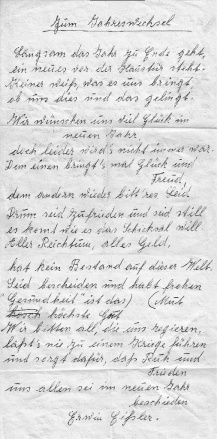 Zum Jahreswechsel
Langsam das Jahr zu Ende geht,
ein neues vor der Haustür steht.
Keiner weiß, was es uns bringt
ob uns dies und das gelingt.
Wir wünschen uns viel Glück im
neuen Jahr,
doch leider wird's nicht immer war.
Dem einen bringt's mal Glück und
Freud,
dem andern wieder bittres Leid
Drum seid zufrieden und seid still
es komt wie es das Schicksal will
Aller Reichtum, alles Geld,
hat kein Bestand auf dieser Welt.
Seid bescheiden und habt frohen
Gesundheit ist das) (Mut
höchste Gut
Wir bitten all, die uns regieren,
laßt's nie zu einem Kriege führen
und sorgt dafür, daß Ruh und
Frieden
uns allen sei im neuen Jahr
beschieden
Erwin